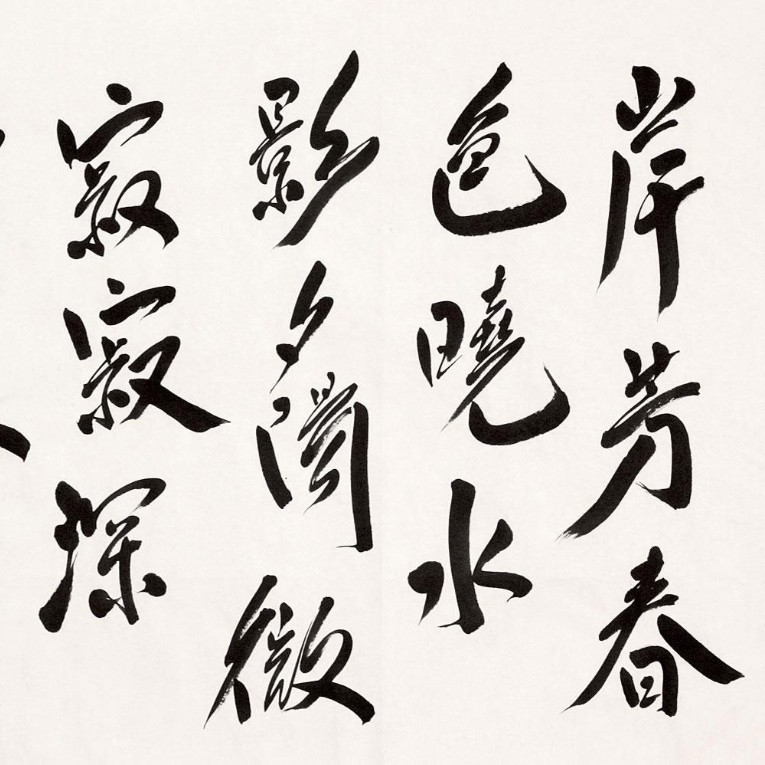 岸芳春
色曉水
影夕陽微
寂寂深